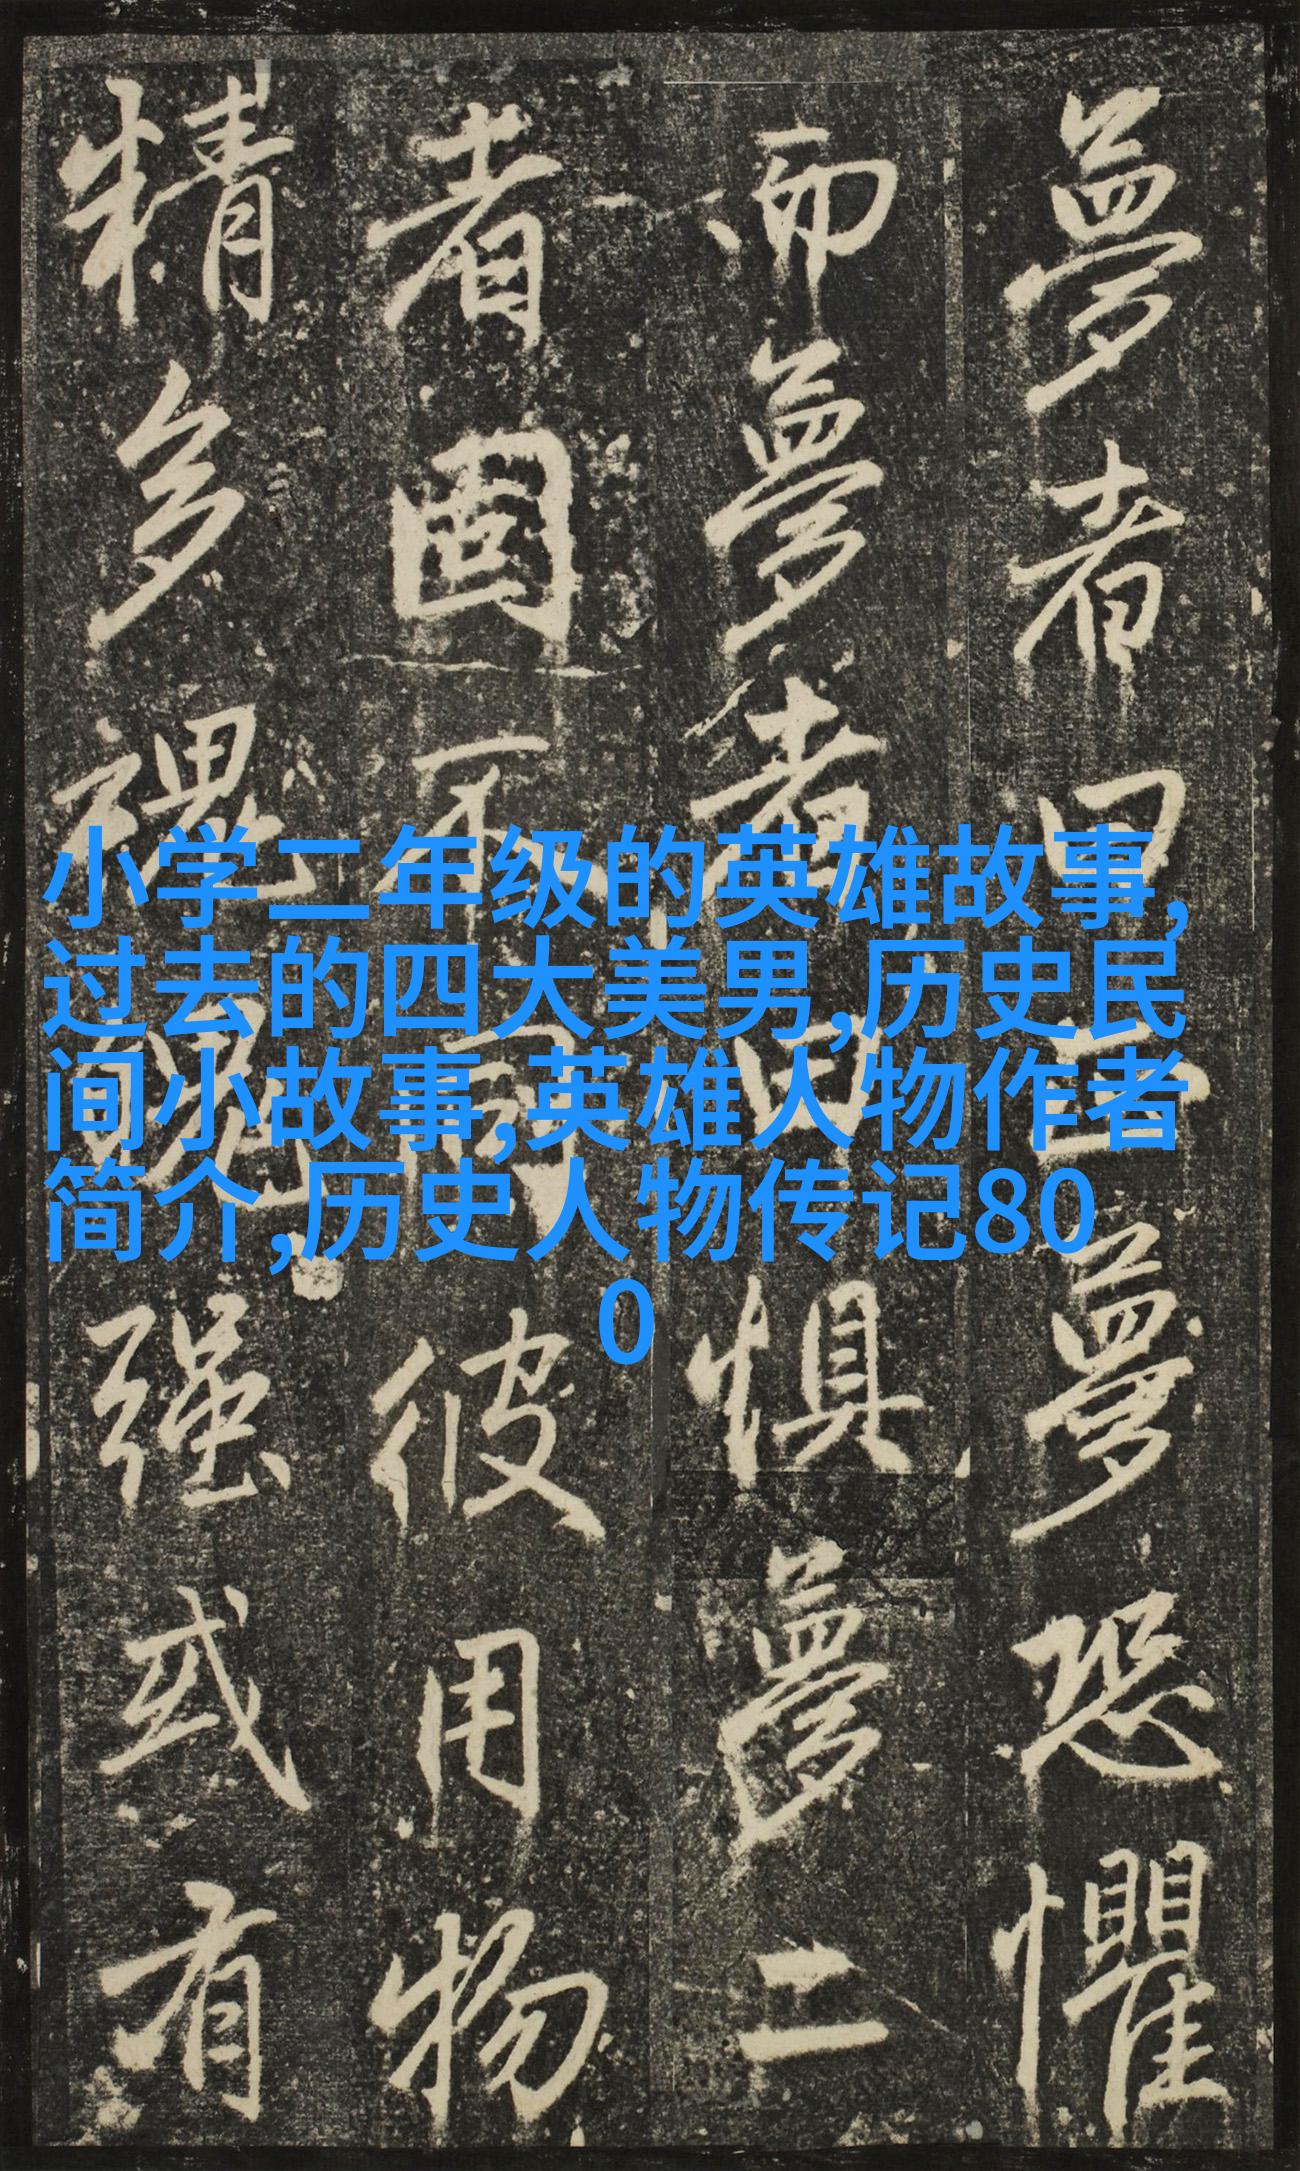 夢者曰夢恐懼
而夢者曰懼夢二
者固不同彼用物
精多魂魄强或有
小学二年级的英雄故事,
过去的四大美男,历史民
间小故事,英雄人物作者
简介,历史人物传记80
0